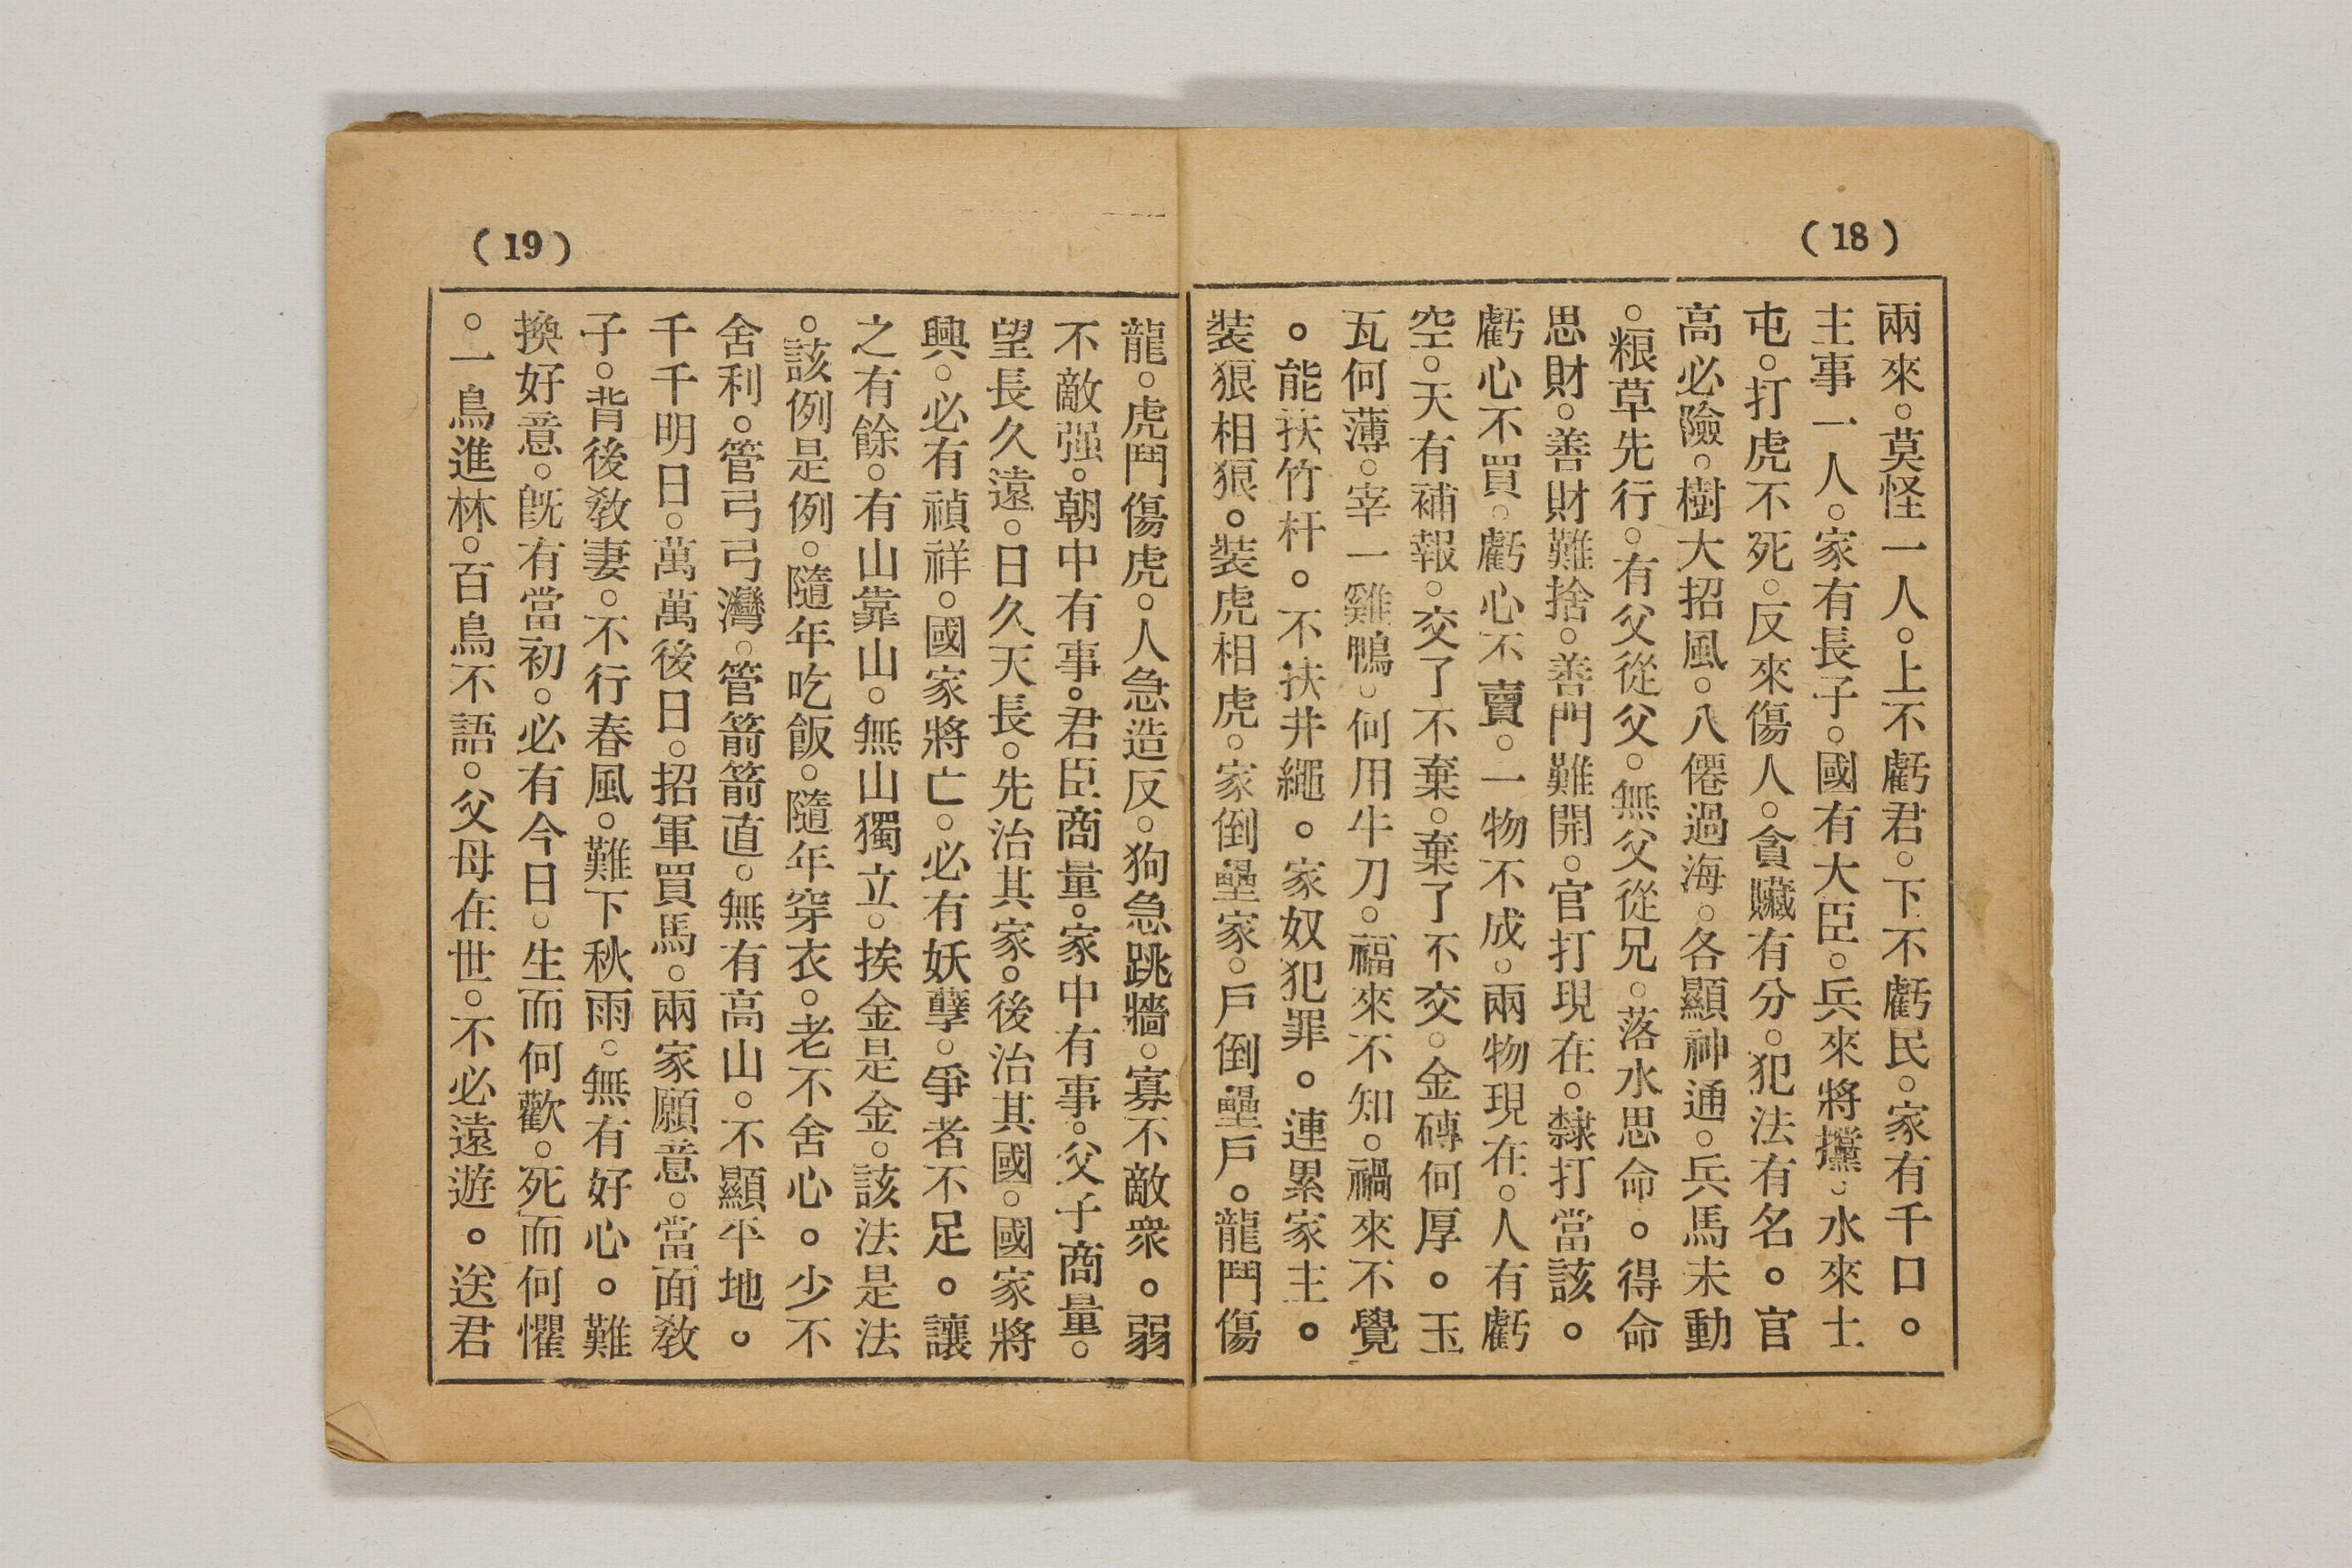 (18)
兩來。莫怪一人。上不虧君。下不虧民。家有千口。
主事一人。家有長子。國有大臣。兵來將攩。水來土
屯。打虎不死。反來傷人。貪贜有分。犯法有名。官
高必險。樹大招風。八僊過海。各顯神通。兵馬未動
。粮草先行。有父從父。無父從兄。落水思命。得命
思財。善財難捨。善門難開。官打現在。隸打當該。
虧心不買。虧心不賣。一物不成。兩物現在。人有虧
空。天有補報。交了不棄。棄了不交。金磚何厚。玉
瓦何薄。宰一雞鴨。何用牛刀。福來不知。禍來不覺
。能扶竹杆。不扶井繩。家奴犯罪。連累家主。
裝狠相狠。裝虎相虎。家倒壘家。戶倒壘戶。龍鬥傷
(19)
龍。虎鬥傷虎。人急造反。狗急跳牆。寡不敵衆。弱
不敵强。朝中有事。君臣商量。家中有事。父子商量。
望長久遠。日久天長。先治其家。後治其國。國家將
興。必有禎祥。國家將亡。必有妖孽。爭者不足。讓
之有餘。有山靠山。無山獨立。挨金是金。該法是法
。該例是例。隨年吃飯。隨年穿衣。老不舍心。少不
舍利。管弓弓灣。管箭箭直。無有高山。不顯平地。
千千明日。萬萬後日。招軍買馬。兩家願意。當面敎
子。背後敎妻。不行春風。難下秋雨。無有好心。難
換好意。旣有當初。必有今日。生而何歡。死而何懼
。一鳥進林。百鳥不語。父母在世。不必遠遊。送君